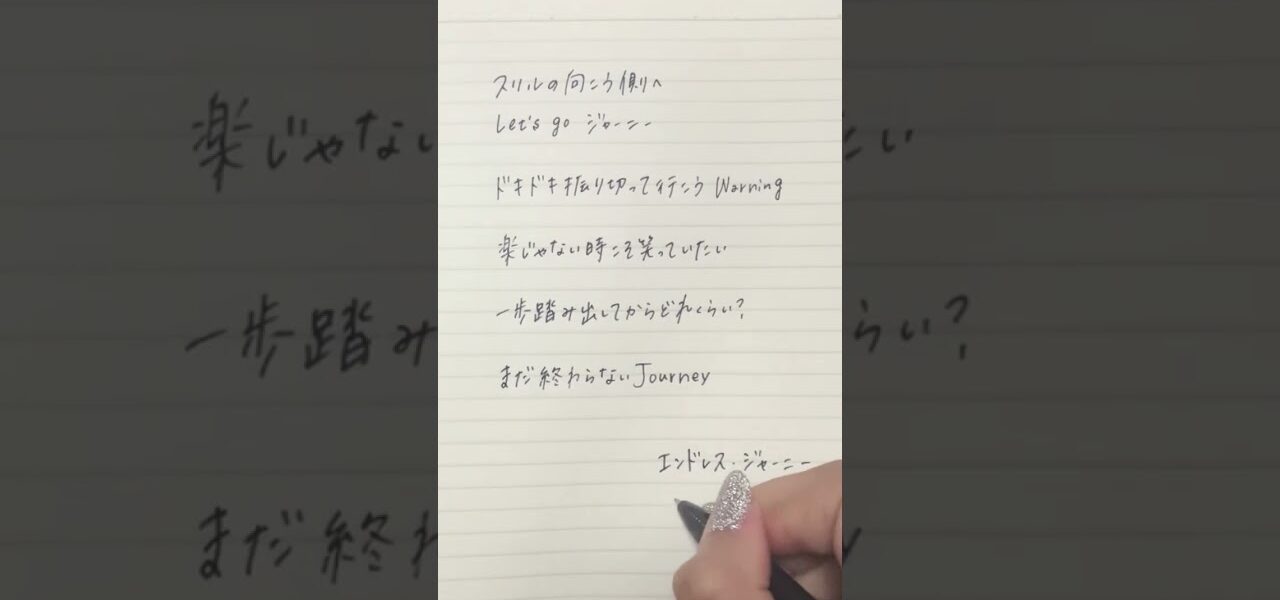 スリルの向こう側へ
Let's go ジャーニー
ドキドキ振り切って行こう Warning
楽じゃない時こそ笑っていたい
一歩踏み出してからどれくらい?
まだ終わらないJourney
エンドレス・ジャーニー